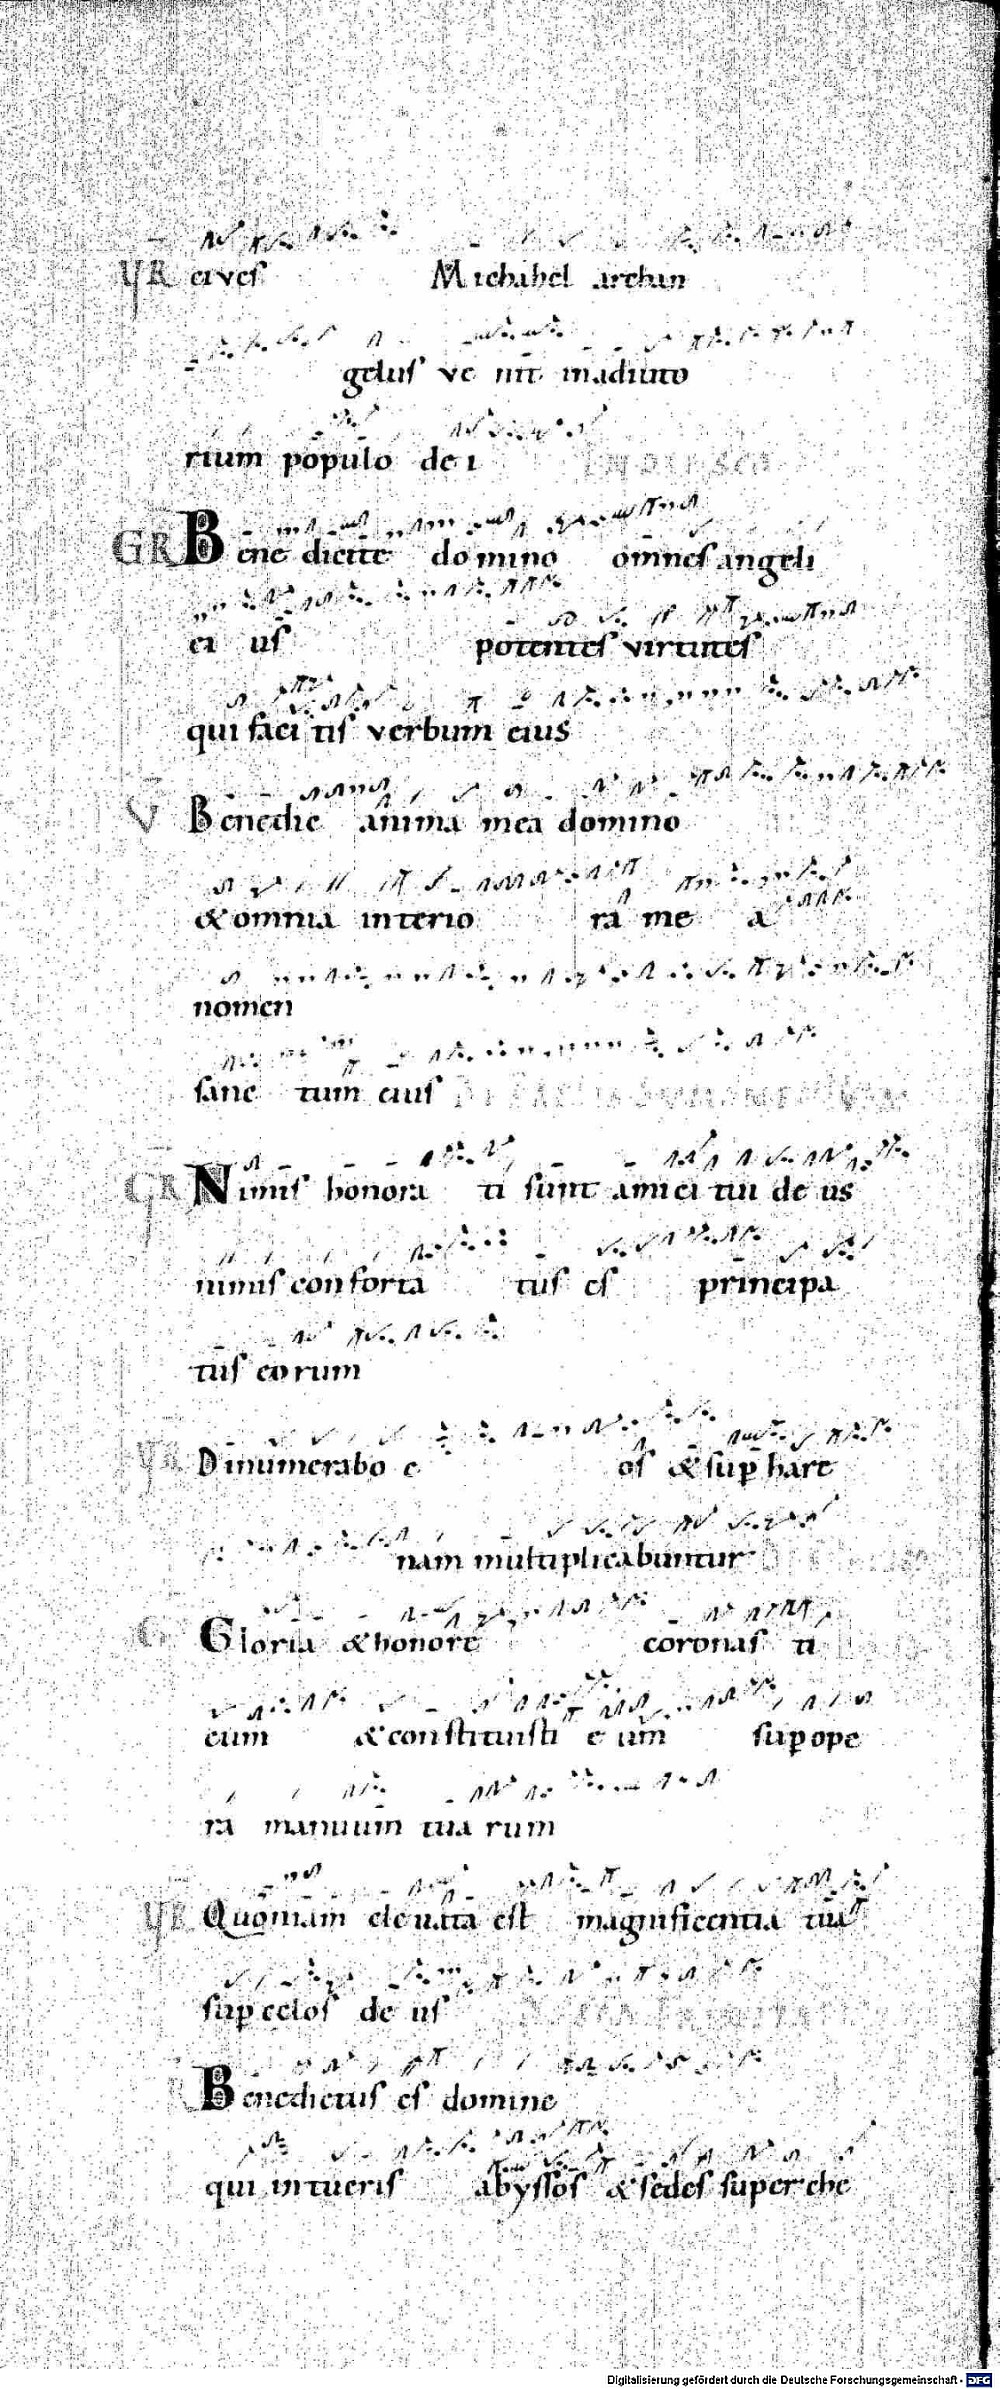 VR eius Michahel archan
gelus ve nit inadiuto
rium populo de i
GR Bene dicite domino omnes angeli
ei us potentes virtutes
qui faci tis verbum eius
V Benedic anima mea domino
& omnia interio ra me a
nomen
sanc tum eius
GR Nimis honora ti sunt amici tui de us
nimis conforta tus es principa
tus eo rum
VR Dinumerabo e os & sup hare
nam multiplicabuntur
G Gloria & honore coronas ti
eum & constituisti e um sup ope
ra manuum tua rum
VR Quoniam eleuata est magnificentia tua
sup celos de us
Benedictus es domine
qui intueris abyssos & sedes super che
Digitalisierung gefördert durch die Deutsche Forschungsgemeinschaft - DFG